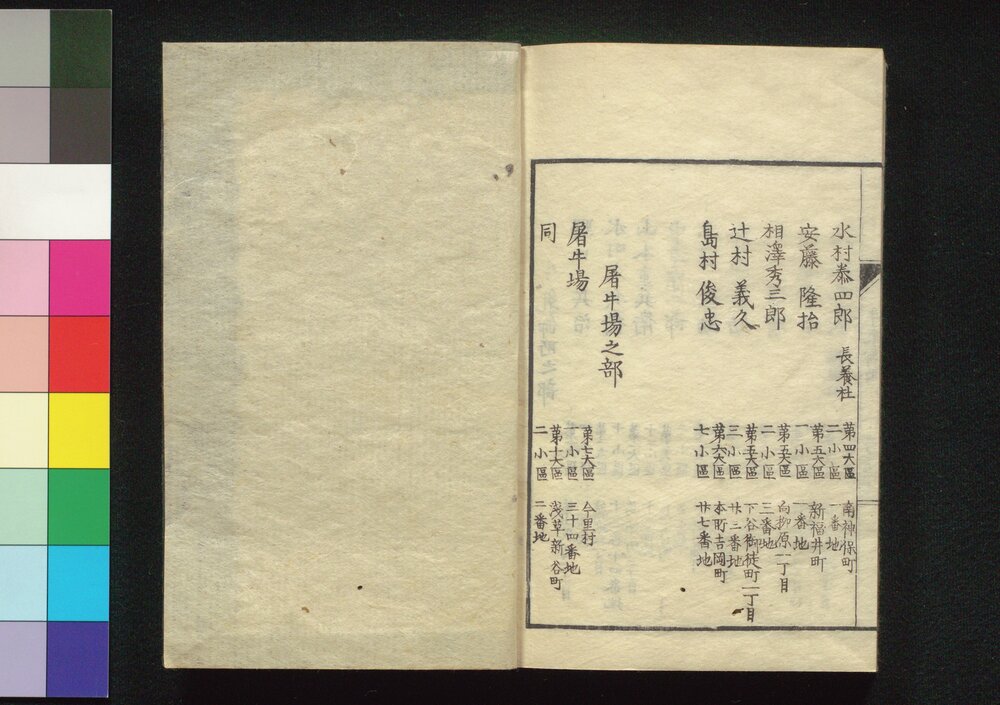 水村泰四郎 長養社 第四大區二小區 南神保町一番地
安藤 隆抬 第五大區一小區 新福井町一番地
相澤秀三郎 第五大區二小區 向柳原一丁目三番地
辻村 義久 第五大區三小區 下谷御徒町一丁目廿二番地
島村 俊忠 第六大區七小區 本所吉岡町廿七番地
屠牛場之部
屠牛場 第七大區一小區 今里村三十四番地
同 第十大區二小區 淺草新谷町二番地